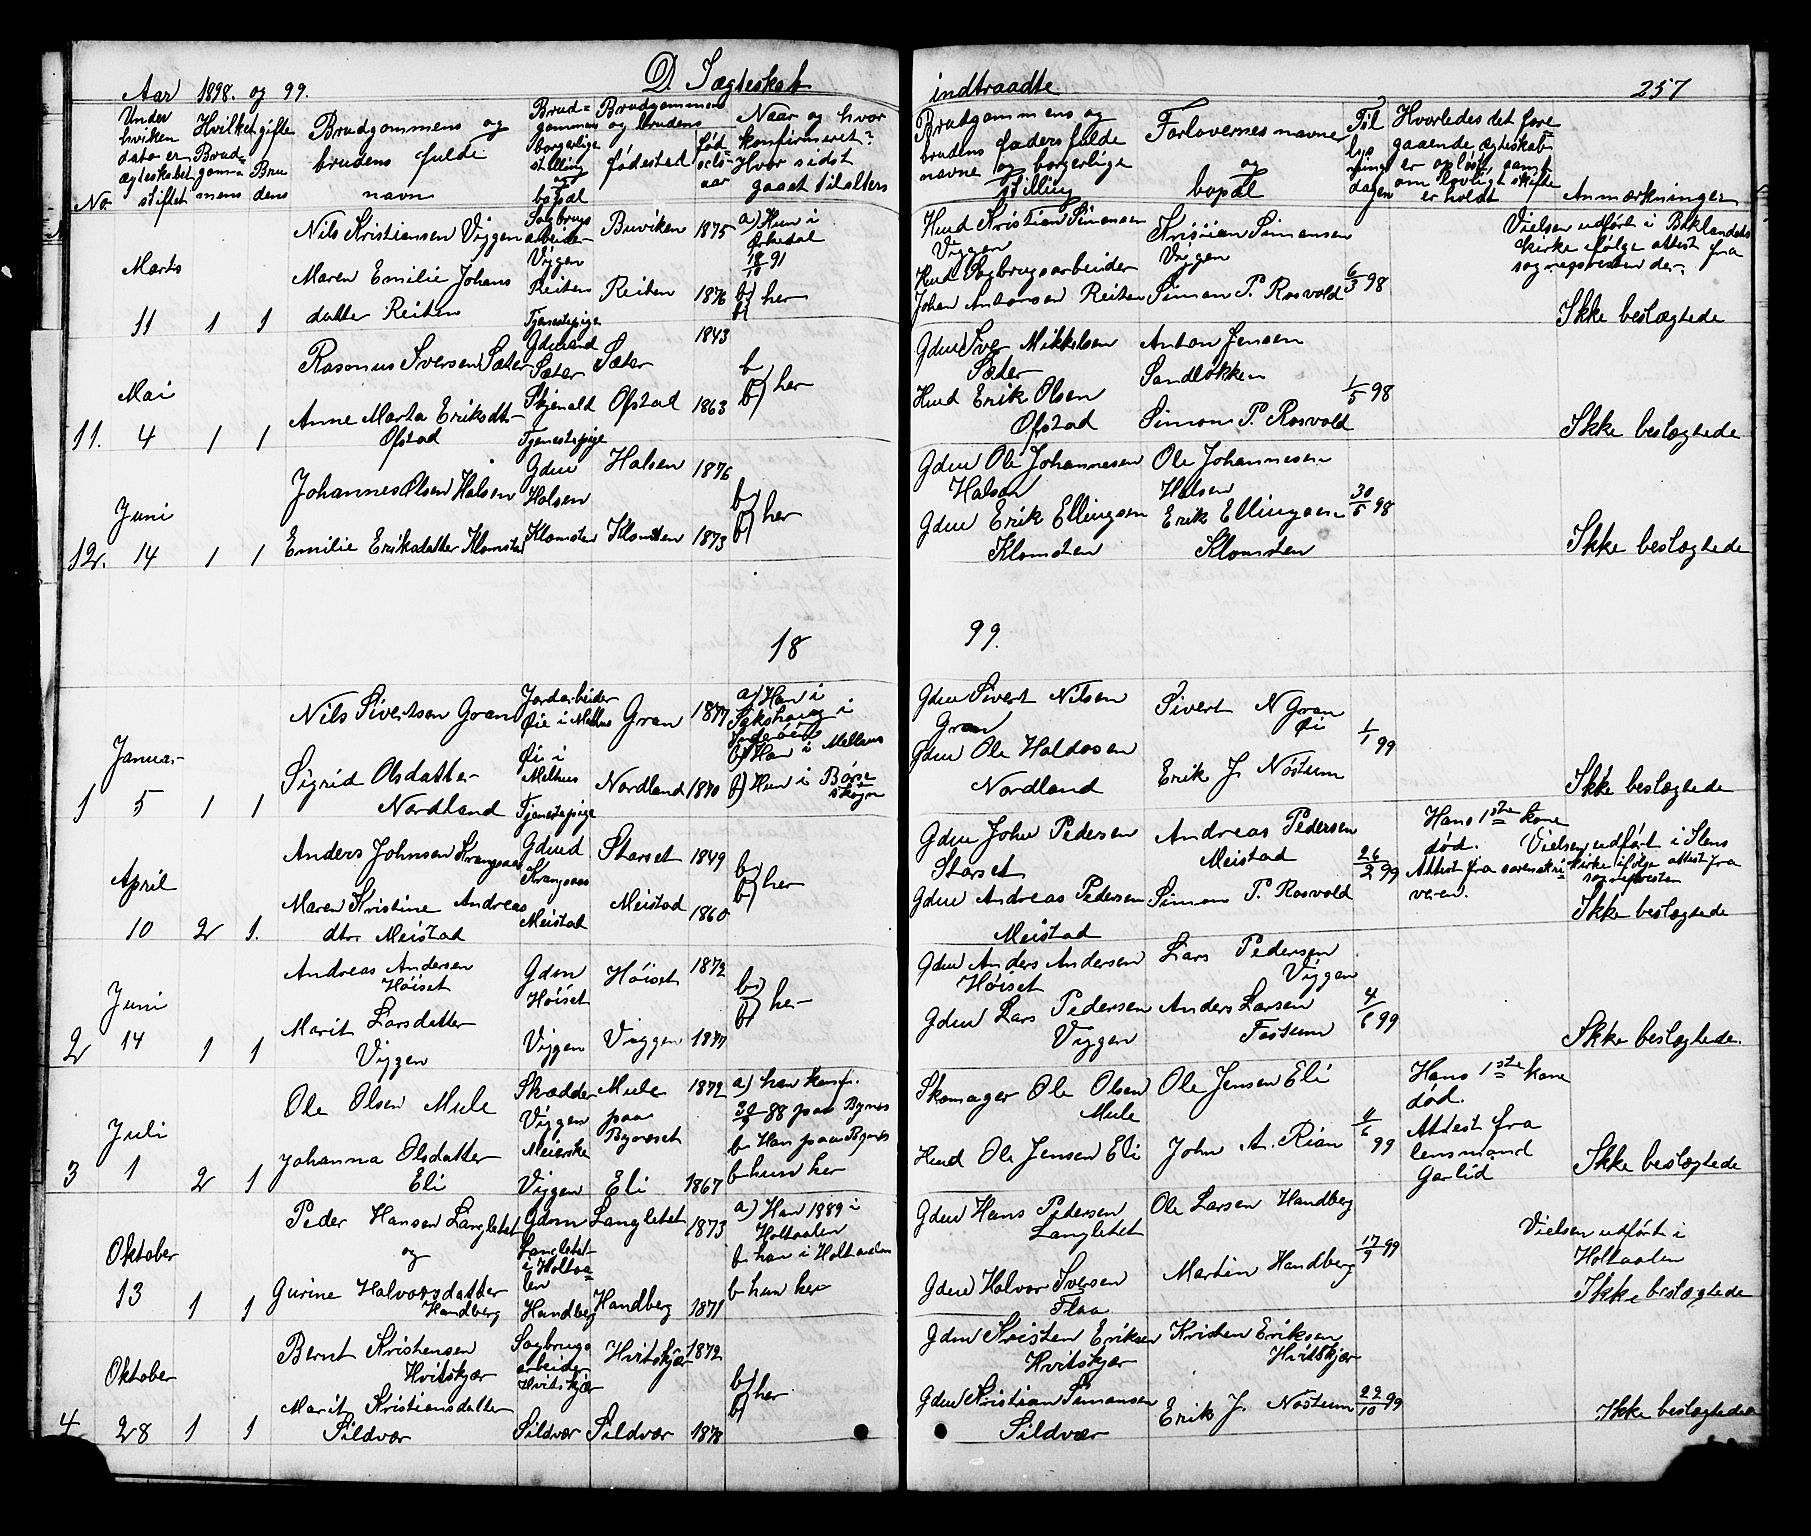 Aar 1898. og 99.
D. Ægteskab
indtraadte
257
No
Under hvilken dato er ægteskabet stiftet
Hvilket gifte
Brudgommens
Brudens
Brudgommens og brudens fulde navn
Brudgommens borgerlige stilling og bopæl
Brudgommens og brudens fødested
fødselsaar
Naar og hvor konfirmeret? Hvor sidst gaaet til alters
Brudgommens og brudens faders fulde navne og borgerlige stilling
Forlovernes navne og bopæl
Til lysningsdagen
Hvorledes det foregaaende ægteskab er opløst, samt om lovligt skifte er holdt
Anmærkninger
Marts 11 1 1
Nils Kristiansen Viggen
Sagbrugsarbeider Viggen
Buviken 1875
a) Hun i Ørkedal 18/10 91
Maren Emilie Johansdatter Reiten
Reiten Tjenestepige
Reiten 1876
b) her
Husd Kristian Simonsen Viggen
Husd Sagbrugsarbeider
Johan Antonsen Reiten
Kristian Simonsen Viggen
Simon P. Rosvold
6/3 98
Vielsen udført i Baklandets kirke ifølge attest fra sognepresten der.
Ikke beslægtede
11. Mai 4 1 1
Rasmus Iversen Sæter
Gdmand Sæter
Sæter 1843
Anne Marta Eriksdtr Ofstad
Skjenald Tjenestepige
Ofstad 1863
b) her
Gdm Iver Mikkelsen Sæter
Husd Erik Olsen Ofstad
Anton Jensen Sandløkken
Simon P. Rosvold
1/5 98
Ikke beslægtede
12. Juni 14 1 1
Johannes Olsen Halsen
Gdm Halsen
Halsen 1876
Emilie Eriksdatter Klomsten
Klomsten
Klomsten 1873
b) her
Gdm Ole Johannesen Halsen
Gdm Erik Ellingsen Klomsten
Ole Johannesen Halsen
Erik Ellingsen Klomsten
30/5 98
Ikke beslægtede
18 99.
1 Januar 5 1 1
Nils Sivertsen Gran
Jordarbeider Øie i Melhus
Gran 1877
a) Han i Sakshaug i Inderøen
b) Han i Melhus
Sigrid Olsdatter Nordland
Øie i Melhus Tjenestepige
Nordland 1870
b) Hun i Børseskogn
Gdm Sivert Nilsen Gran
Gdm Ole Haldosen Nordland
Sivert N Gran Øi
Erik J. Nøstum
1/1 99
Ikke beslægtede
April 10 2 1.
Anders Johnsen Krangsaas
Gdmd Krangsaas
Størset 1849
Maren Kristine Andreasdtr. Meistad
Meistad
Meistad 1860
b) her
Gdm John Pedersen Størset
Gdm Andreas Pedersen Meistad
Andreas Pedersen Meistad
Simon P. Rosvold
26/2 99
Hans 1ste kone død.
Attest fra sorenskriveren.
Vielsen udført i Slens kirke ifølge attest fra sognepresten
Ikke beslægtede
2 Juni 14 1 1
Andreas Andersen Høiset
Gdm Høiset
Høiset 1872
Marit Larsdatter Viggen
Viggen
Viggen 1877
b) her
Gdm Anders Andersen Høiset
Gdm Lars Pedersen Viggen
Lars Pedersen Viggen
Anders Larsen Tostum
4/6 99
Ikke beslægtede.
3 Juli 1 2 1
Ole Olsen Mule
Skrædder Viggen
Mule paa Bynesset 1872
a) han konf. 30/9 88 paa Bynes
b Han paa Bynes
Johanna Olsdatter Eli
Meierske Viggen
Eli 1867
b hun her
Skomager Ole Olsen Mule
Husd Ole Jensen Eli
Ole Jensen Eli
John A. Rian
4/6 99
Hans 1ste kone død.
Attest fra lensmand Garlid
Ikke beslægtede
Oktober 13 1 1
Peder Hansen Langletet og
Gdm Langletet i Holtaalen
Langletet 1873
a) Han 1889 i Holtaalen
b han i Holtaalen
Gurine Halvorsdatter Handberg
Handberg
Handberg 1871
b hun her
Gdm Hans Pedersen Langletet
Gdm Halvor Iversen Flaa
Ole Larsen Handberg
Martin Handberg
17/9 99
Vielsen udført i Holtaalen
Ikke beslægtede
4 Oktober 28 1 1
Bernt Kristensen Hvitskjær
Sagbrugsarbeider Hvitskjær
Hvitskjær 1872
Marit Kristiansdatter Sildvær
Sildvær
Sildvær 1878
b) her
Gdm Kristen Eriksen Hvitskjær
Gdm Kristian Simonsen Sildvær
Kristen Eriksen Hvitskjær
Erik J. Nøstum
22/10 99
Ikke beslægtede